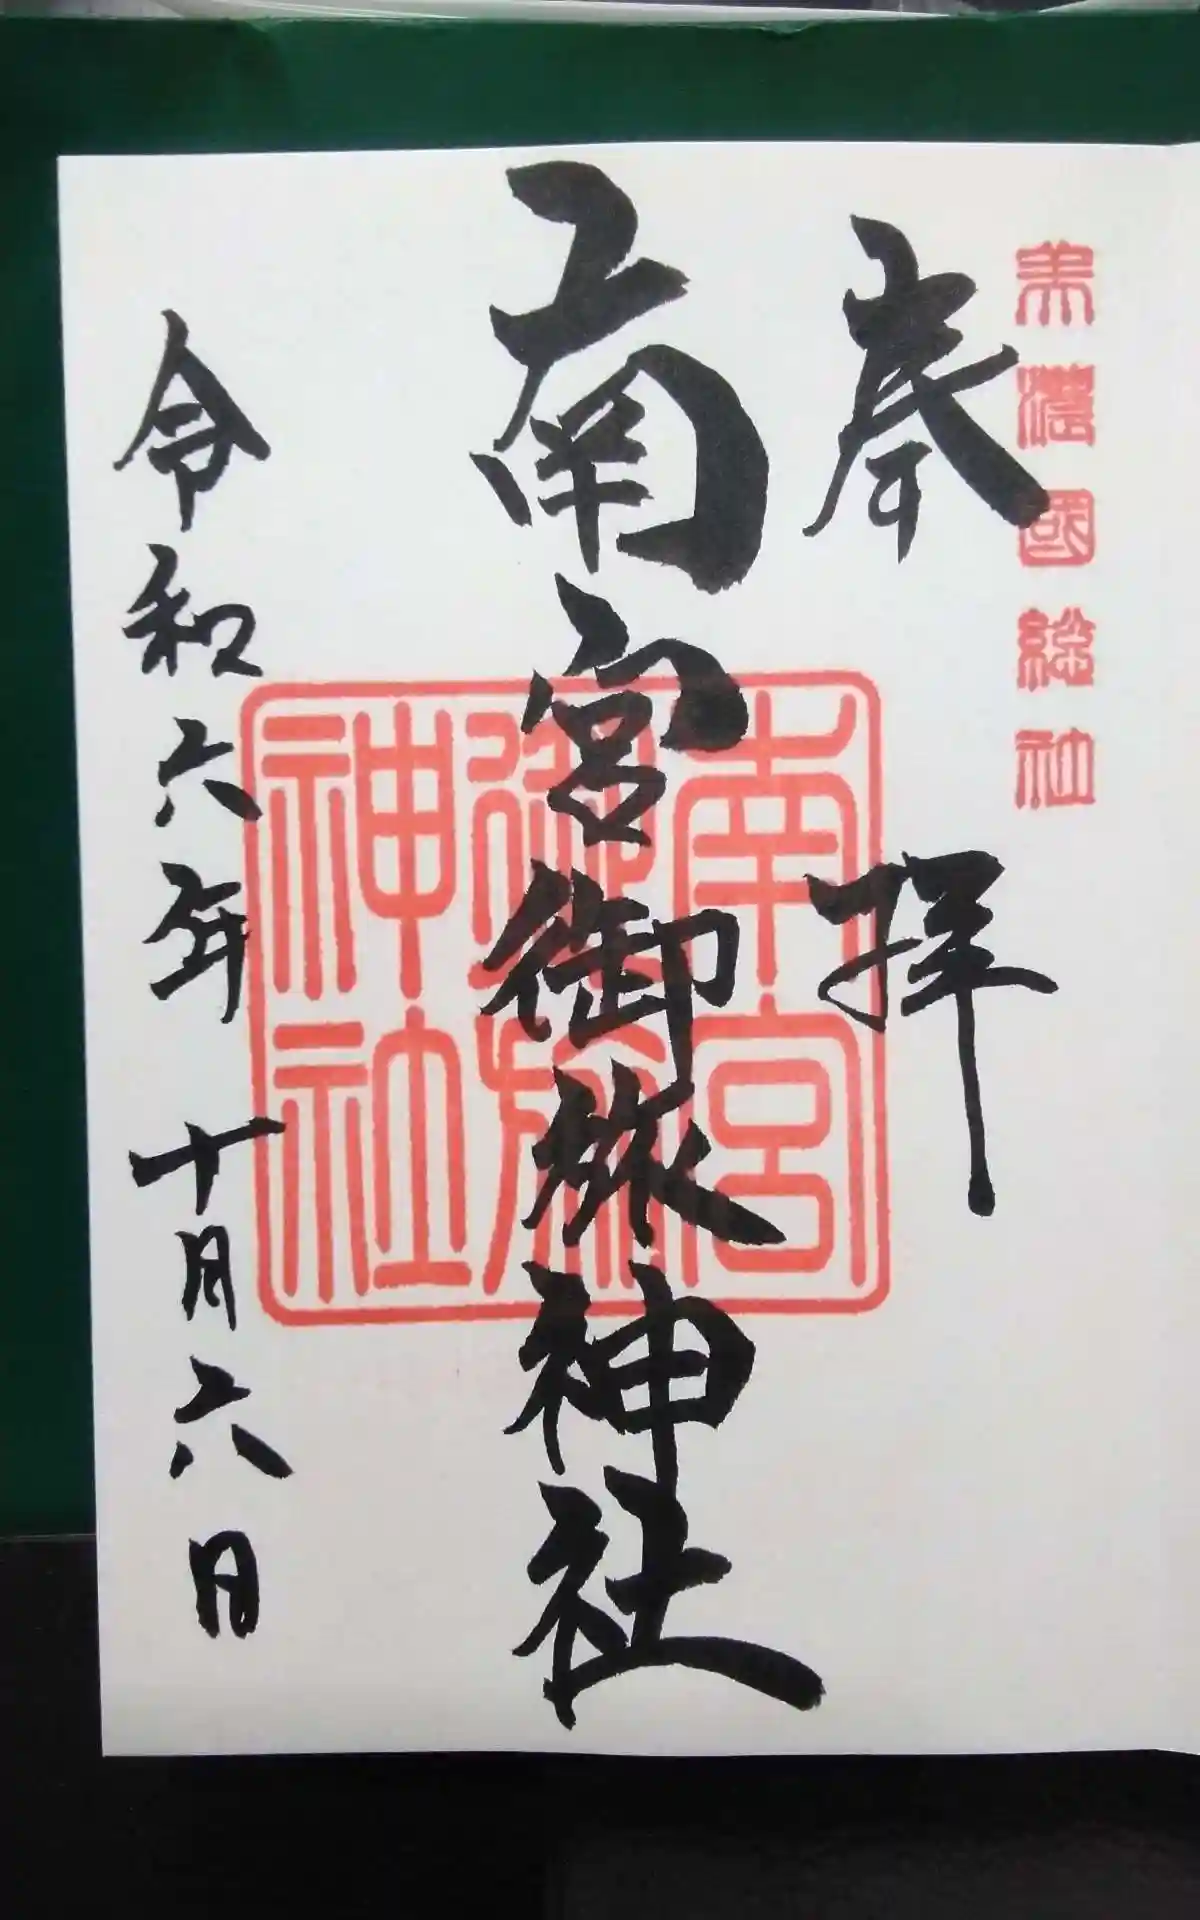 美濃國総社
奉拝
南宮御旅神社
南宮
御旅
神社
令和六年 十月六日